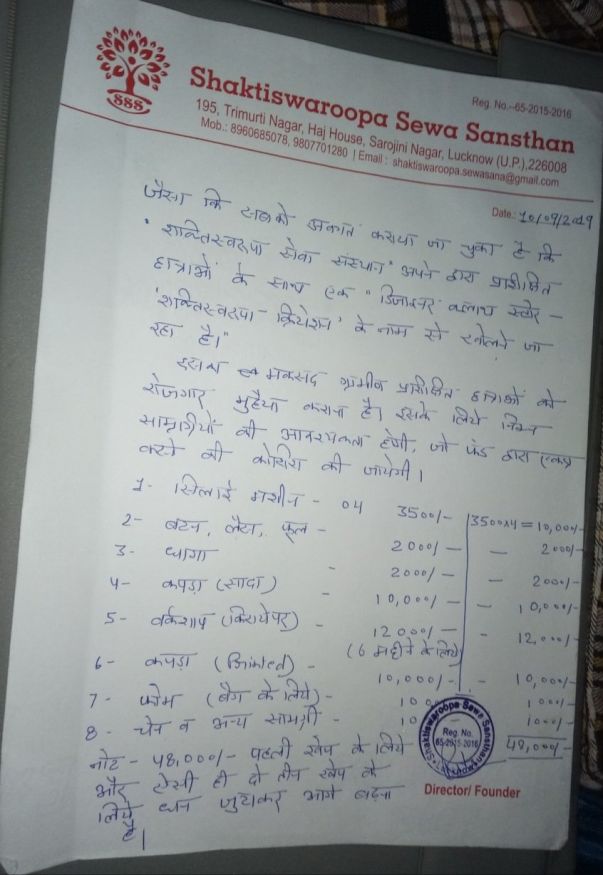 Reg. No.--65-2015-2016
SSS
Shaktiswaroopa Sewa Sansthan
195, Trimurti Nagar, Haj House, Sarojini Nagar, Lucknow (U.P.),226008
Mob.: 8960685078, 9807701280 | Email : shaktiswaroopa.sewasana@gmail.com
Date.: 10/09/2019
जैसा कि सबको अवगत कराया जा चुका है कि
"शक्तिस्वरूपा सेवा संस्थान" अपने द्वारा प्रशिक्षित
छात्राओं के साथ एक "डिजाइनर क्लाथ स्टोर -
'शक्तिस्वरूपा - क्रियेशन' के नाम से खोलने जा
रहा है।"
इसका मकसद ग्रामीण प्रशिक्षित छात्राओं को
रोजगार मुहैया कराना है। इसके लिये निम्न
सामग्रीयों की आवश्यकता होगी, जो फंड द्वारा एकत्र
करने की कोशिश की जायेगी।
1- सिलाई मशीन - 04 3500/- 3500x4 = 10,000/-
2- बटन, लैस, फूल - 2000/- - 2000/-
3- धागा - 2000/- - 2000/-
4- कपड़ा (सादा) - 10,000/- - 10,000/-
5- वर्कशाप (किराये पर) - 12000/- - 12,000/-
(6 महीने के लिये)
6- कपड़ा (Printed) - 10,000/- - 10,000/-
7- फोम (बैग के लिये) - 100 1000/-
8- चेन व अन्य सामग्री - 10 1000/-
48,000/-
नोट - 48,000/- पहली खेप के लिये
और ऐसी ही दो तीन खेप के
लिये धन जुटाकर आगे बढ़ना
है।
Shaktiswaroopa Sewa Sansthan
Reg. No.
65-2015-2016
Director/ Founder